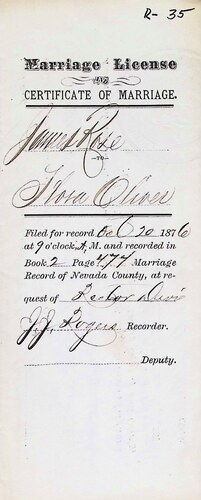 R-35
Marriage License
AND
CERTIFICATE OF MARRIAGE.
James Rose
-TO-
Flora Oliver
Filed for record Oct 20 1876
at 9 o'clock A. M. and recorded in
Book 2 Page 477 Marriage
Record of Nevada County, at re-
quest of
J. J. Rogers Recorder.
Deputy.